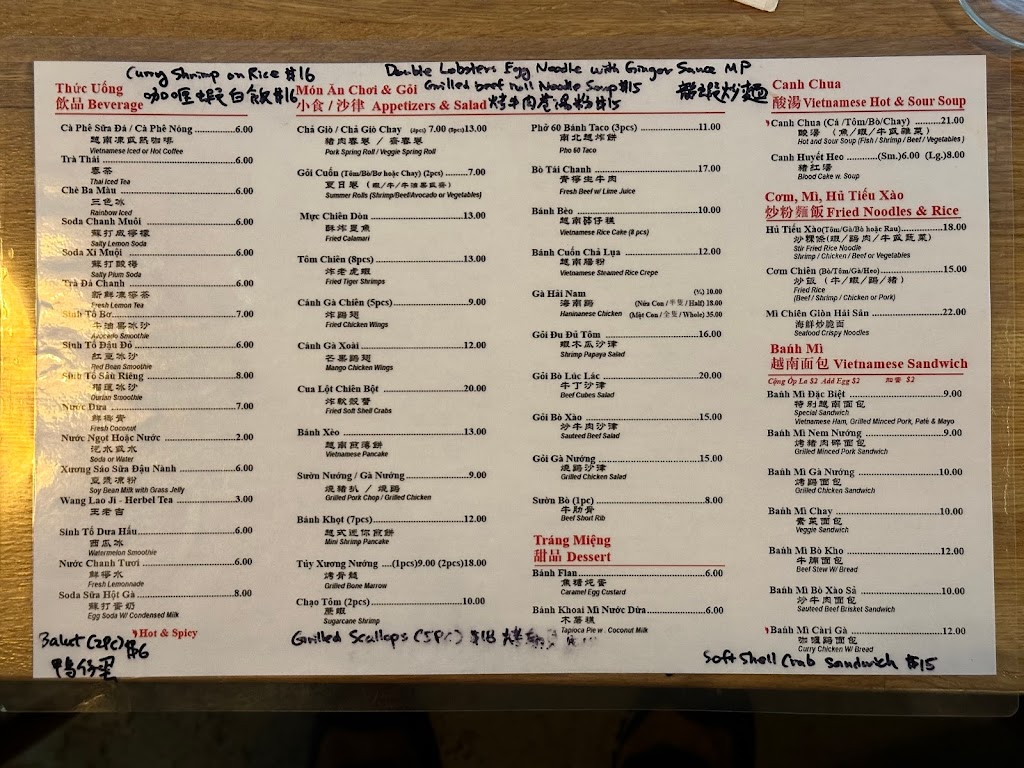 Curry Shrimp on Rice $16
咖喱蝦白飯$16
Double Lobsters Egg Noodle with Ginger Sauce MP
龍蝦炒麵
Grilled beef roll Noodle Soup $15
烤牛肉卷湯粉$15
Thức Uống
飲品 Beverage
Cà Phê Sữa Đá / Cà Phê Nóng 6.00
越南凍或熱咖啡
Vietnamese Iced or Hot Coffee
Trà Thái 6.00
泰茶
Thai Iced Tea
Chè Ba Màu 6.00
三色冰
Rainbow Iced
Soda Chanh Muối 6.00
蘇打咸檸檬
Salty Lemon Soda
Soda Xí Muội 6.00
蘇打酸梅
Salty Plum Soda
Trà Đá Chanh 6.00
新鮮凍檸茶
Fresh Lemon Tea
Sinh Tố Bơ 7.00
牛油果冰沙
Avocado Smoothie
Sinh Tố Đậu Đỏ 6.00
紅豆冰沙
Red Bean Smoothie
Sinh Tố Sầu Riêng 8.00
榴槤冰沙
Durian Smoothie
Nước Dừa 7.00
鮮椰青
Fresh Coconut
Nước Ngọt Hoặc Nước 2.00
汽水或水
Soda or Water
Xương Sáo Sữa Đậu Nành 6.00
豆漿涼粉
Soy Bean Milk with Grass Jelly
Wang Lao Ji - Herbel Tea 3.00
王老吉
Sinh Tố Dưa Hấu 6.00
西瓜冰
Watermelon Smoothie
Nước Chanh Tươi 6.00
鮮檸水
Fresh Lemonnade
Soda Sữa Hột Gà 8.00
蘇打蛋奶
Egg Soda W/ Condensed Milk
Hot & Spicy
Balut (2PC) $6
鴨仔蛋
Món Ăn Chơi & Gỏi
小食 / 沙律 Appetizers & Salad
Chả Giò / Chả Giò Chay (4pcs) 7.00 (8pcs)13.00
豬肉春卷 / 齋春卷
Pork Spring Roll / Veggie Spring Roll
Gỏi Cuốn (Tôm/Bò/Bơ hoặc Chay) (2pcs) 7.00
夏日卷 (蝦/牛/牛油果或齋)
Summer Rolls (Shrimp/Beef/Avocado or Vegetables)
Mực Chiên Dòn 13.00
酥炸墨魚
Fried Calamari
Tôm Chiên (8pcs) 13.00
炸老虎蝦
Fried Tiger Shrimps
Cánh Gà Chiên (5pcs) 9.00
炸鷄翅
Fried Chicken Wings
Cánh Gà Xoài 12.00
芒果鷄翅
Mango Chicken Wings
Cua Lột Chiên Bột 20.00
炸軟殼蟹
Fried Soft Shell Crabs
Bánh Xèo 13.00
越南煎薄餅
Vietnamese Pancake
Sườn Nướng / Gà Nướng 9.00
燒豬扒 / 燒鷄
Grilled Pork Chop / Grilled Chicken
Bánh Khọt (7pcs) 12.00
越式迷你煎餅
Mini Shrimp Pancake
Tủy Xương Nướng (1pcs)9.00 (2pcs)18.00
烤骨髓
Grilled Bone Marrow
Chạo Tôm (2pcs) 10.00
蔗蝦
Sugarcane Shrimp
Grilled Scallops (5PC) $18 烤
Phở 60 Bánh Taco (3pcs) 11.00
南北越炸餅
Pho 60 Taco
Bò Tái Chanh 17.00
青檸生牛肉
Fresh Beef w/ Lime Juice
Bánh Bèo 10.00
越南碗仔糕
Vietnamese Rice Cake (8 pcs)
Bánh Cuốn Chả Lụa 12.00
越南腸粉
Vietnamese Steamed Rice Crepe
Gà Hải Nam (¼) 10.00
海南鷄 (Nửa Con / 半隻 / Half) 18.00
Haninanese Chicken (Một Con / 全隻 / Whole) 35.00
Gỏi Đu Đủ Tôm 16.00
蝦木瓜沙津
Shrimp Papaya Salad
Gỏi Bò Lúc Lắc 20.00
牛丁沙津
Beef Cubes Salad
Gỏi Bò Xào 15.00
炒牛肉沙津
Sauteed Beef Salad
Gỏi Gà Nướng 15.00
燒鷄沙津
Grilled Chicken Salad
Sườn Bò (1pc) 8.00
牛肋骨
Beef Short Rib
Tráng Miệng
甜品 Dessert
Bánh Flan 6.00
焦糖炖蛋
Caramel Egg Custard
Bánh Khoai Mì Nước Dừa 6.00
木薯糕
Tapioca Pie w . Coconut Milk
Canh Chua
酸湯 Vietnamese Hot & Sour Soup
Canh Chua (Cá /Tôm/Bò/Chay) 21.00
酸湯 (魚/蝦/牛或雜菜)
Hot and Sour Soup (Fish / Shrimp / Beef / Vegetables )
Canh Huyết Heo (Sm.)6.00 (Lg.)8.00
猪紅湯
Blood Cake w. Soup
Cơm, Mì, Hủ Tiếu Xào
炒粉麵飯 Fried Noodles & Rice
Hủ Tiếu Xào(Tôm/Gà/Bò hoặc Rau) 18.00
炒粿條(蝦/鷄肉/牛或蔬菜)
Stir Fried Rice Noodle
Shrimp / Chicken / Beef or Vegetables
Cơm Chiên (Bò/Tôm/Gà/Heo) 15.00
炒飯 (牛/蝦/鷄/豬)
Fried Rice
(Beef / Shrimp / Chicken or Pork)
Mì Chiên Giòn Hải Sản 22.00
海鮮炒脆面
Seafood Crispy Noodles
Bánh Mì
越南面包 Vietnamese Sandwich
Cộng Ốp La $2 Add Egg $2 加蛋 $2
Bánh Mì Đặc Biệt 9.00
特別越南面包
Special Sandwich
Vietnamese Ham, Grilled Minced Pork, Paté & Mayo
Bánh Mì Nem Nướng 9.00
烤猪肉碎面包
Grilled Minced Pork Sandwich
Bánh Mì Gà Nướng 10.00
烤鷄面包
Grilled Chicken Sandwich
Bánh Mì Chay 10.00
素菜面包
Veggie Sandwich
Bánh Mì Bò Kho 12.00
牛腩面包
Beef Stew W/ Bread
Bánh Mì Bò Xào Sả 10.00
炒牛肉面包
Sauteed Beef Brisket Sandwich
Bánh Mì Càri Gà 12.00
咖喱鷄面包
Curry Chicken W/ Bread
Soft Shell Crab Sandwich $15